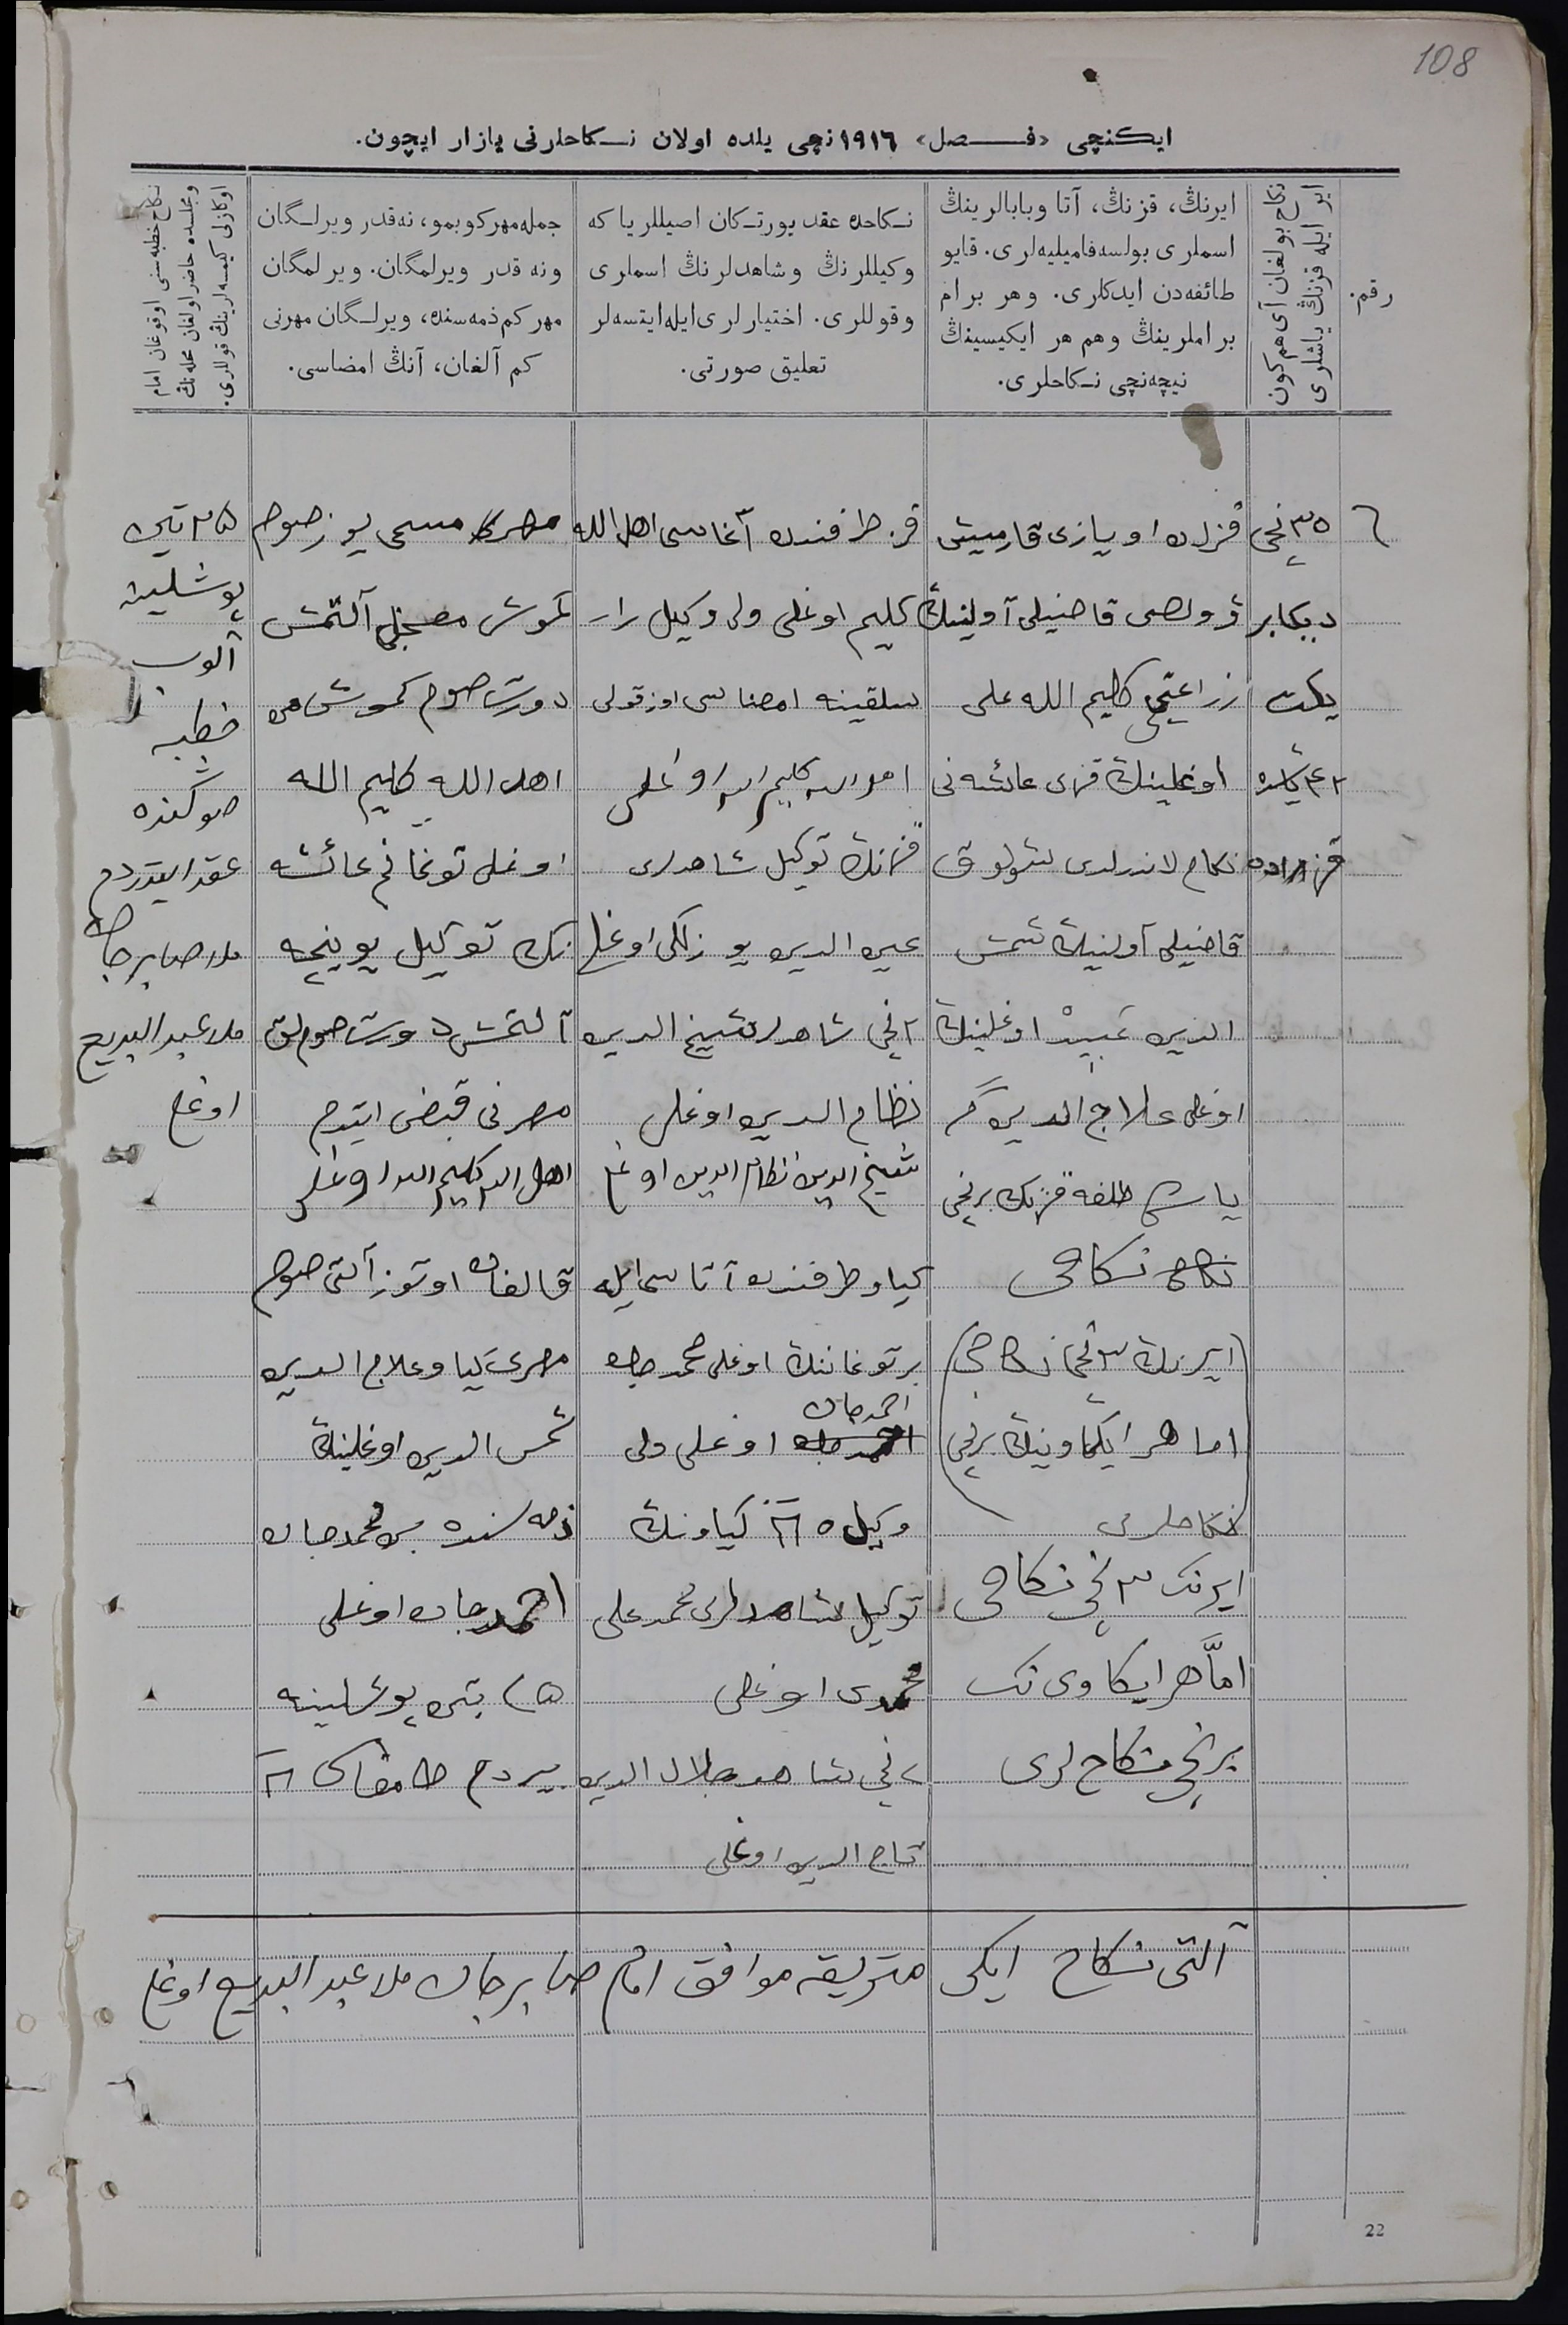 108
ایکنچی «فصل» ۱۹۱٦نچی یلده اولان نکاحلرنی یازار ایچون.
رقم.
نکاح بولغان آی هم کون
ایر ایله قزنڭ یاشلری
ایرنڭ، قزنڭ، آتا وبابالرینڭ
اسملری بولسه فامیلیه‌لری. قایو
طائفه‌دن ایدکلری. وهر برام
براملرینڭ وهم هر ایکیسینڭ
نیچه‌نچی نکاحلری.
نکاحده عقد یورتکان اصیللر یا که
وکیللرنڭ وشاهدلرنڭ اسملری
وقوللری. اختیارلری ایله ایتسه‌لر
تعلیق صورتی.
جمله مهر کوبمو، نه‌قدر ویرلگان
ونه قدر ویرلمگان. ویرلمگان
مهر کم ذمه‌سنده، ویرلگان مهرنی
کم آلغان، آنڭ امضاسی.
نکاح خطبه‌سنی اوقوغان امام
ومجلسده حاضر اولغان محله‌نڭ
اوکازلی کیمسه‌لرینڭ قوللری.
٦
۳۰نچی
دیکابر
یکت
۴۲ یاشده
قز ده
قزلده اویازی قارمیش
وولصی قاضیلی آولینڭ
زراعتچی کلیم الله علی
اوغلینڭ قزی عائشه‌نی
نکاحلاندرلدی شولوق
قاضیلی آولینڭ شمس
الدین عبید اوغلینڭ
اوغلی علاج الدین گه
یاش طلفه قزنک برنچی
نکاحی
ایرنڭ ۳نچی نکاحی
اما هر ایکاوینڭ برنچی
نکاحلری
ایرنک ۳نچی نکاحی
اما هر ایکاوی نک
برنچی نکاح لری
قز طرفندن آغاسی اهل الله
کلیم اوغلی ولی وکیل رار
سلقینه امضاسی اوز قولی
اهل الله کلیم الله اوغلی
قزنڭ توکیل شاهدلری
عین الدین یوزلکی اوغلی
۲نچی شاهد شیخ الدین
نظام الدین اوغلی
شیخ الدین نظام الدین اوغلی
کیاو طرفندن آتاسی ایله
برتوغاننڭ اوغلی محمدجان
احمدجان
احمدجان اوغلی ولی
وکیل کیاونڭ
توکیل شاهدلری محمد علی
محمدی اوغلی
۲نچی شاهد جلال الدین
تاج الدین اوغلی
مهری مسمی یوز صوم
کموش معجل آلتمش
دورت صوم کموش من
اهل الله کلیم الله
اوغلی توغانم عائشه
نک توکیل یوینچه
آلتمش دورت صوملق
مهرنی قبض ایتدم
اهل الله کلیم الله اوغلی
قالغان اوتوز آلتی صوم
مهری کیاو علاج الدین
شمس الدین اوغلینڭ
ذمه سنده من محمدجان
احمدجان اوغلی
۲۵ تین پوشلینه
بیردم طامغای
۲۵ تین
پوشلینه
آلوب
خطبه
صوکنده
عقد ایتدردم
ملا صابرجان
ملا عبد البدیع
اوغلی
آلتی نکاح ایکی متریقه موافق امام صابرجان ملا عبد البدیع اوغلی
22